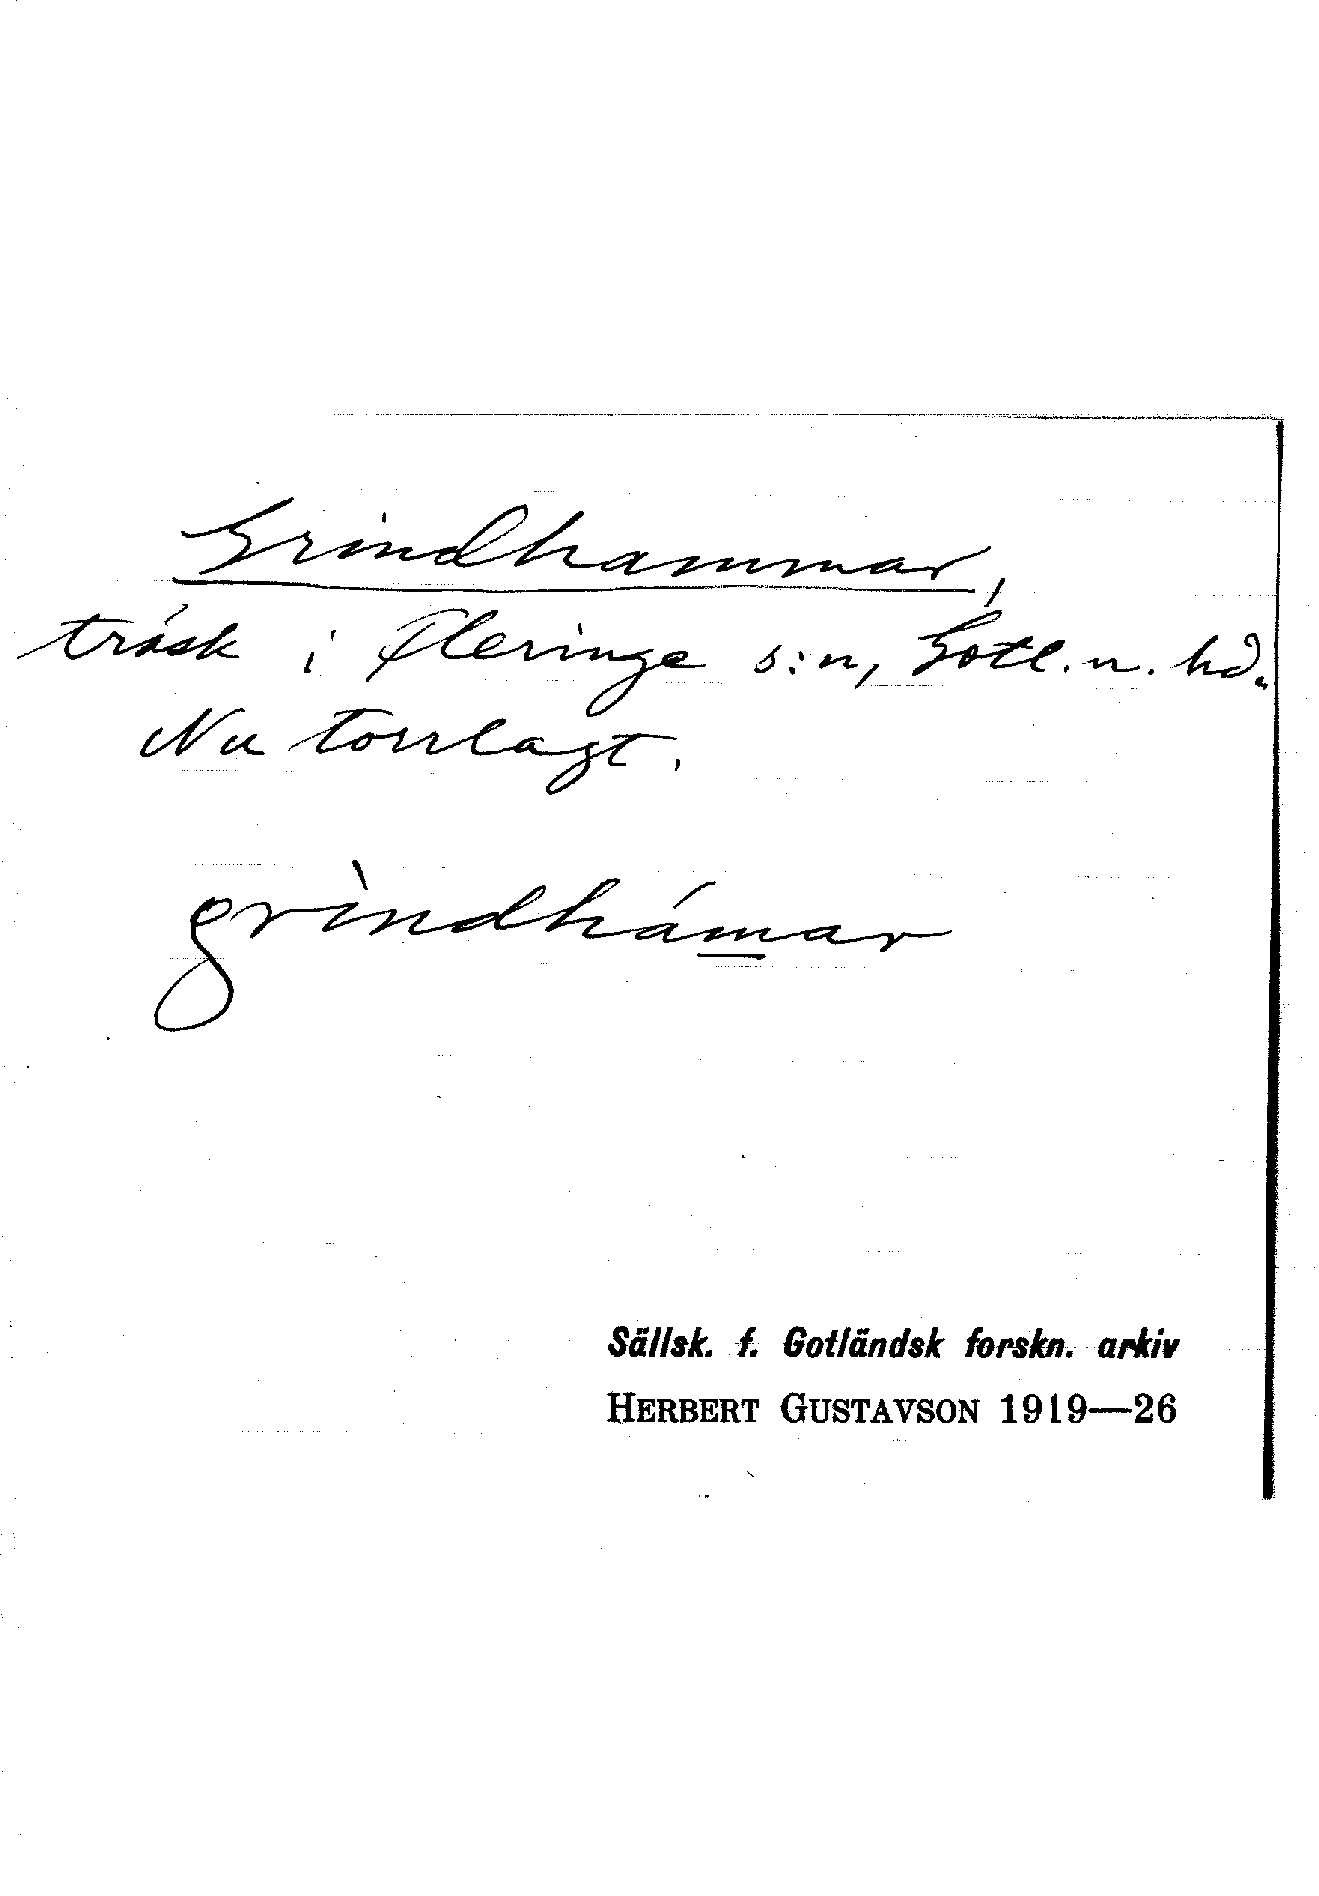 Grindhammar,
träsk i Fleringe s:n, Gotl. n. hd.
Nu torrlagt.
grìndhámar
Sällsk. f. Gotländsk forskn. arkiv
HERBERT GUSTAVSON 1919—26